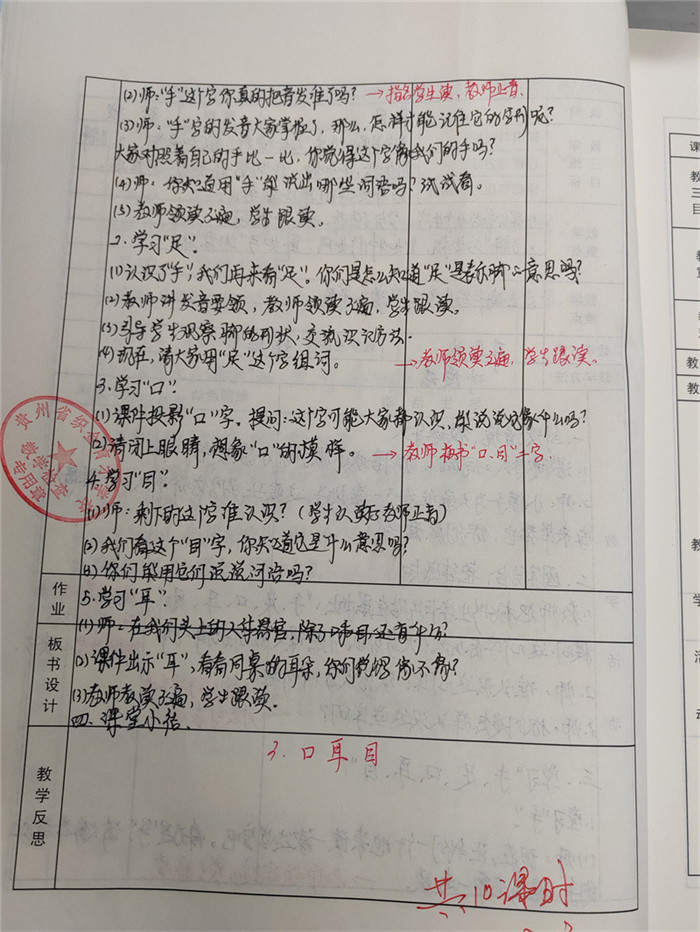 (2)师:“手”这个字你真的把音发准了吗?→指名学生读,教师正音.
(3)师:“手”字的发音大家掌握了,那么,怎样才能记住它的字形呢?
大家对照着自己的手比一比,你觉得这个字像我们的手吗?
(4)师:你知道用“手”能说出哪些词语吗?试试看。
(5)教师领读三遍,学生跟读。
2.学习“足”.
(1)认识了“手”,我们再来看“足”。你们是怎么知道“足”是表示脚的意思吗?
(2)教师讲发音要领,教师领读三遍,学生跟读。
(3)引导学生观察脚的形状,交流识记方法.
(4)现在,请大家用“足”这个字组词。
→教师领读三遍,学生跟读.
3.学习“口”.
(1)课件投影“口”字.提问:这个字可能大家都认识,能说说它像什么吗?
(2)请闭上眼睛,想象“口”的模样。→教师板书“口、目”二字.
4.学习“目”.
(1)师:剩下的这个字谁认识?(学生认读后教师正音)
(2)我们看这个“目”字,你知道它是什么意思吗?
(3)你们能用它们说说词语吗?
作业
5.学习“耳”.
(1)师:在我们头上的人体器官,除了口和目还有什么?
板书设计
(2)课件出示“耳”,看看同桌的耳朵,你们觉得像不像?
(3)教师教读三遍,学生跟读.
四.课堂小结.
3.口耳目
教学反思
共10课时
教学检查
专用章
课
教
三
目
教
教
教
学
活